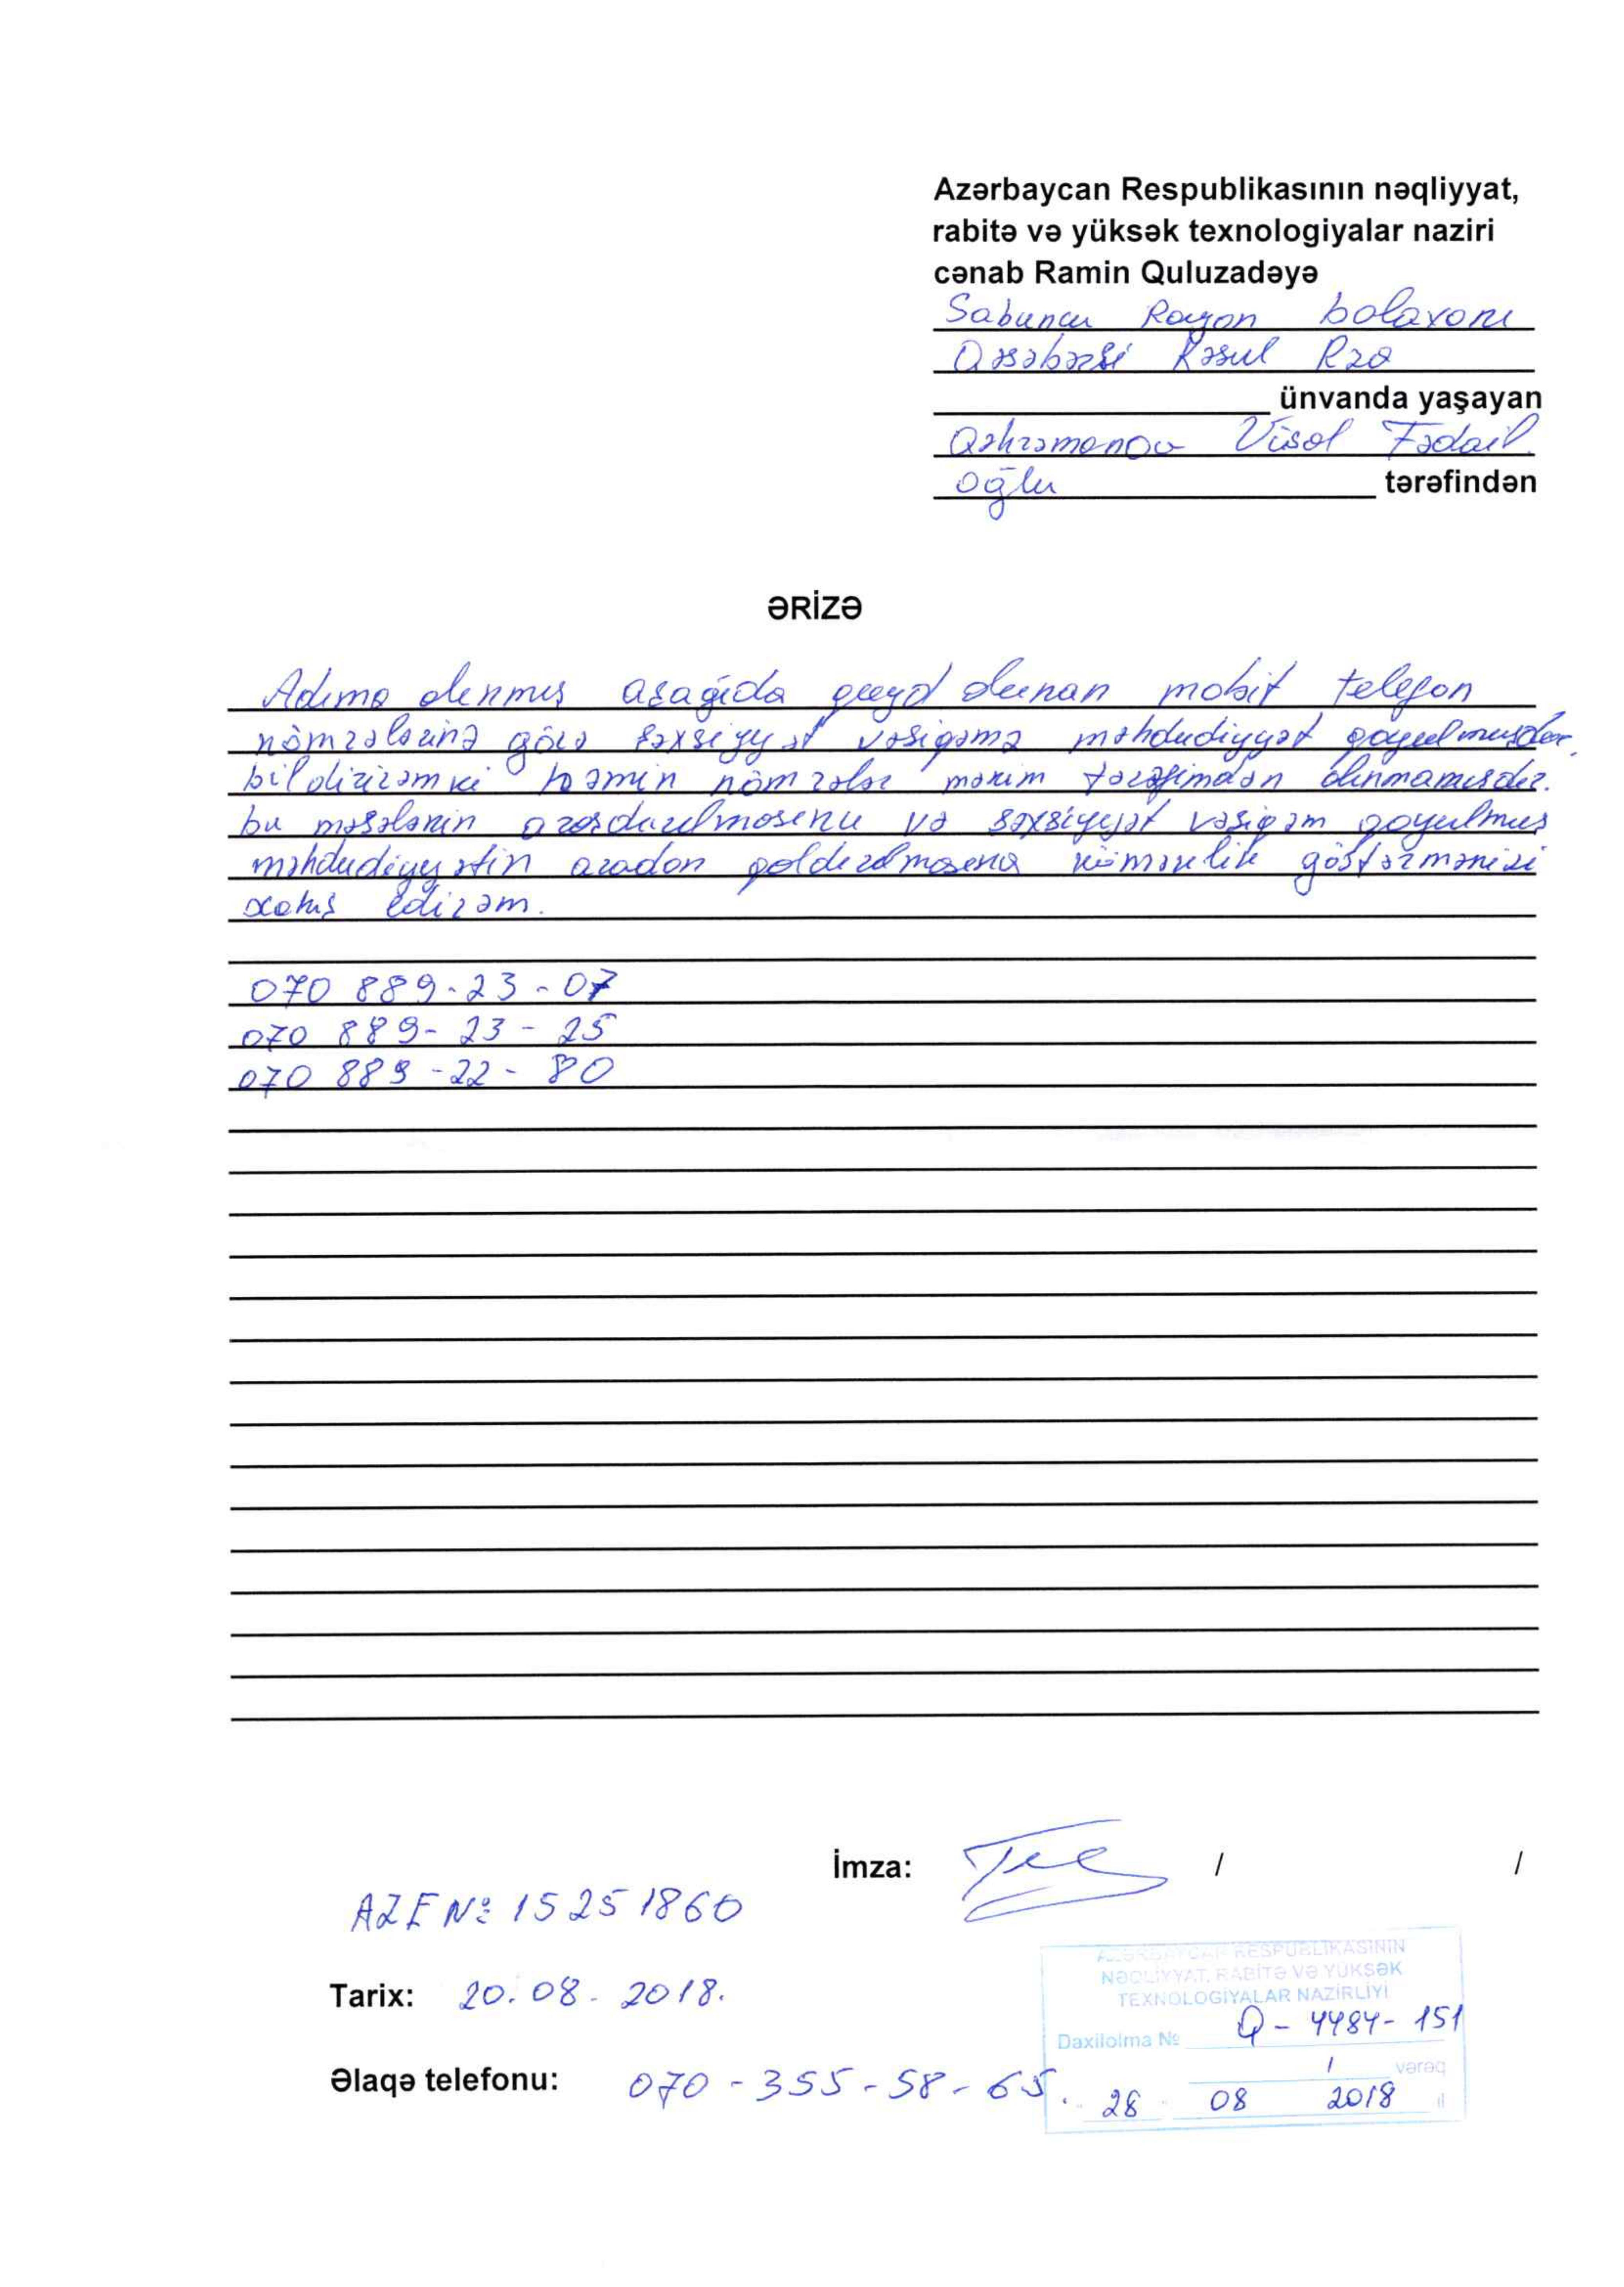 Azərbaycan Respublikasının nəqliyyat,
rabitə və yüksək texnologiyalar naziri
cənab Ramin Quluzadəyə
Sabunçu Rayon bolaxanı
Qəsəbəsi Rəsul Rza
ünvanda yaşayan
Qəhrəmanov Vüsal Fədail
oğlu tərəfindən
ƏRİZƏ
Adıma alınmış aşağıda qeyd olunan mobil telefon
nömrələrinə görə şəxsiyyət vəsiqəmə məhdudiyyət qoyulmuşdur,
bildirirəm ki həmin nömrələr mənim tərəfimdən alınmamışdır.
bu məsələnin araşdırılmasını və şəxsiyyət vəsiqəm qoyulmuş
məhdudiyyətin aradan qaldırılmasına köməklik göstərmənizi
xahiş edirəm.
070 889-23-07
070 889-23-25
070 889-22-80
İmza: / /
AZE № 15251860
Tarix: 20.08.2018.
Əlaqə telefonu: 070-355-58-65.
AZƏRBAYCAN RESPUBLİKASININ
NƏQLİYYAT, RABİTƏ VƏ YÜKSƏK
TEXNOLOGİYALAR NAZİRLİYİ
Daxilolma № Q-4484-151
1 vərəq
28 08 2018 il